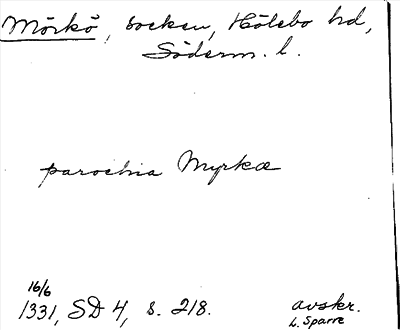 Mörkö, socken, Hölebo hd,
Söderm. l.
parochia Myrkæ
16/6
1331, SD 4, s. 218.
avskr.
L. Sparre